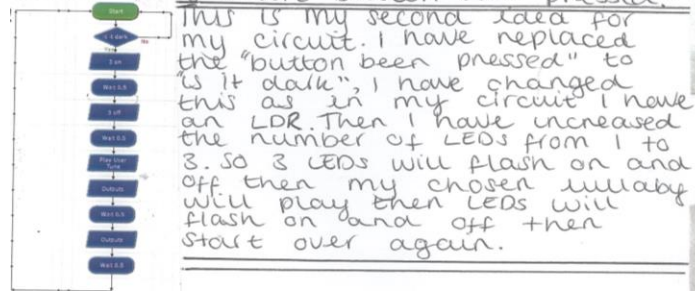 Start
Is it dark
No
Yes
3 on
Wait 0.5
3 off
Wait 0.5
Play User
Tune
Outputs
Wait 0.5
Outputs
Wait 0.5
pressed.
This is my second idea for
my circuit. I have replaced
the "button been pressed" to
"is it dark", I have changed
this as in my circuit I have
an LDR. Then I have increased
the number of LEDs from 1 to
3. So 3 LEDs will flash on and
off then my chosen lullaby
will play then LEDs will
flash on and off then
start over again.